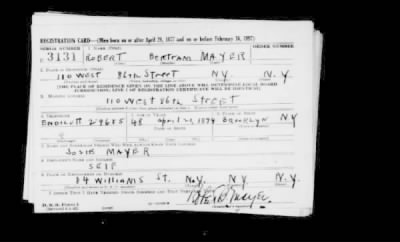 REGISTRATION CARD—(Men born on or after April 28, 1877 and on or before February 16, 1897)
SERIAL NUMBER 1. NAME (Print) ORDER NUMBER
3131 ROBERT BERTRAM MAYER
2. PLACE OF RESIDENCE (Print)
110 WEST 86TH STREET N.Y. N.Y.
[THE PLACE OF RESIDENCE GIVEN ON THE LINE ABOVE WILL DETERMINE LOCAL BOARD
JURISDICTION; LINE 2 OF REGISTRATION CERTIFICATE WILL BE IDENTICAL]
3. MAILING ADDRESS
110 WEST 86TH STREET
4. TELEPHONE 5. AGE IN YEARS 6. PLACE OF BIRTH
ENDICOTT 48 BROOKLYN
N.Y
7. NAME AND ADDRESS OF PERSON WHO WILL ALWAYS KNOW YOUR ADDRESS
JOSIE MAYER
8. EMPLOYER'S NAME AND ADDRESS
SELF
9. PLACE OF EMPLOYMENT OR BUSINESS
84 WILLIAMS ST. N.Y. N.Y.
I AFFIRM THAT I HAVE VERIFIED ABOVE ANSWERS AND THAT THEY ARE TRUE.
D.S.S. Form 1